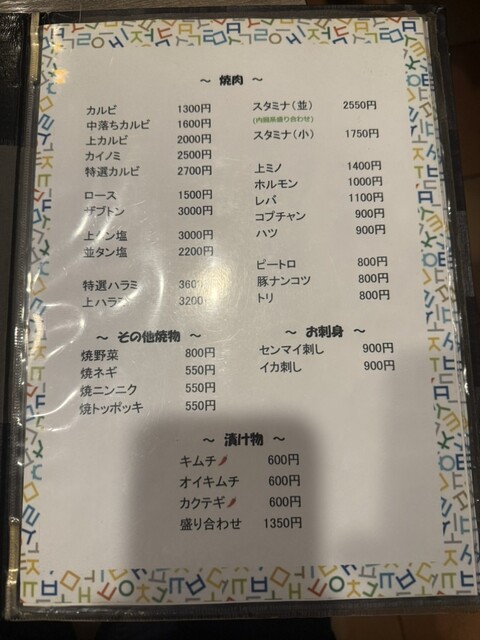 ～ 焼肉 ～
カルビ 1300円
中落ちカルビ 1600円
上カルビ 2000円
カイノミ 2500円
特選カルビ 2700円
ロース 1500円
ザブトン 3000円
上タン塩 3000円
並タン塩 2200円
特選ハラミ 3600
上ハラミ 3200
スタミナ（並） 2550円
(内臓系盛り合わせ)
スタミナ（小） 1750円
上ミノ 1400円
ホルモン 1000円
レバ 1100円
コプチャン 900円
ハツ 900円
ピートロ 800円
豚ナンコツ 800円
トリ 800円
～ その他焼物 ～
焼野菜 800円
焼ネギ 550円
焼ニンニク 550円
焼トッポッキ 550円
～ お刺身 ～
センマイ刺し 900円
イカ刺し 900円
～ 漬け物 ～
キムチ 600円
オイキムチ 600円
カクテギ 600円
盛り合わせ 1350円